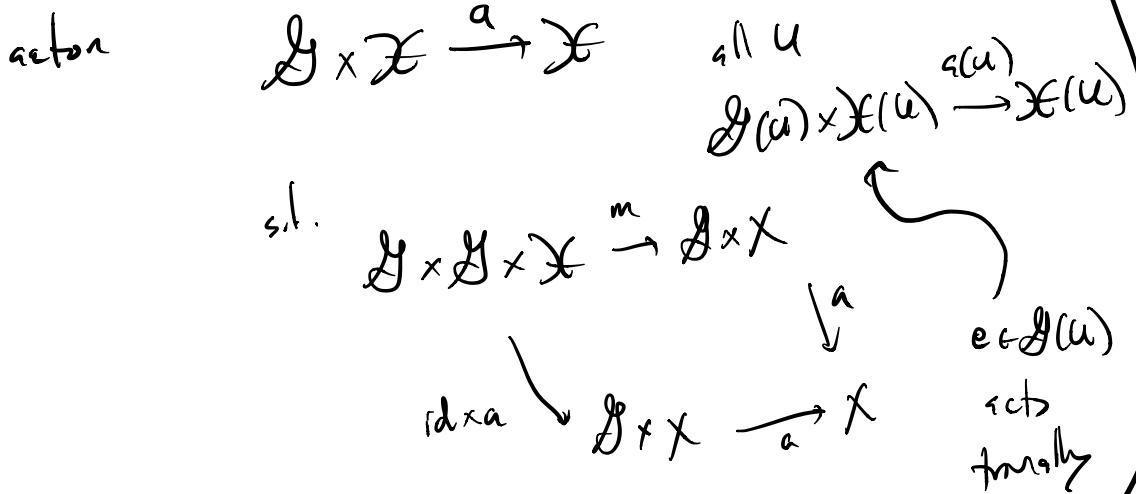 action 𝒢 × 𝒳 →a 𝒳 all U
𝒢(U) × 𝒳(U) →a(U) 𝒳(U)
s.t. 𝒢 × 𝒢 × 𝒳 →m 𝒢 × X
a
id × a 𝒢 × X →a X
e ∈ 𝒢(U)
acts
trivially